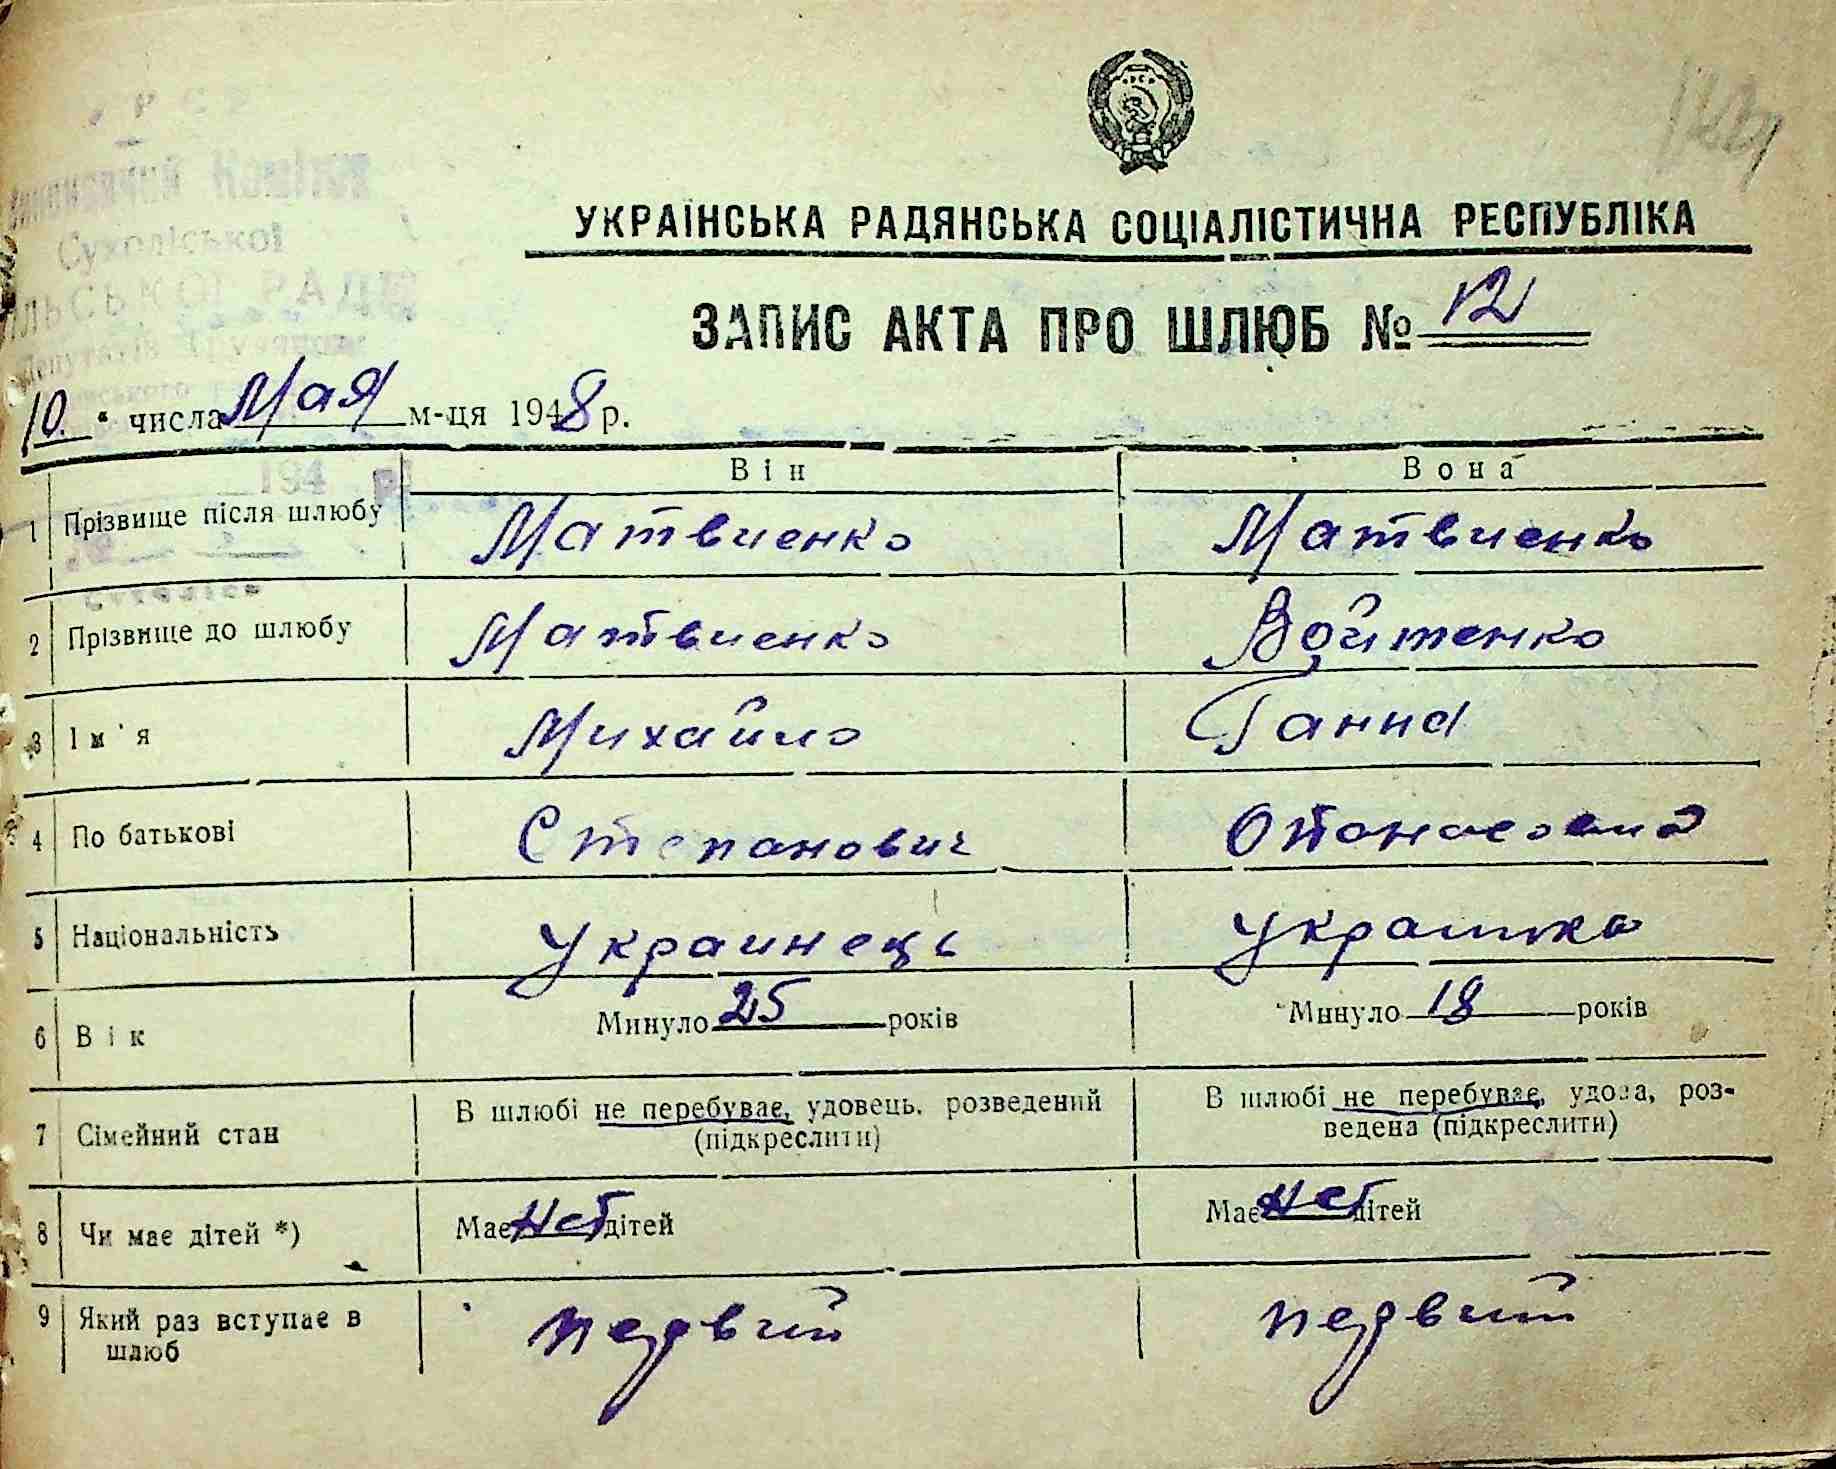 Комітет
Сухоліської
УКРАЇНСЬКА РАДЯНСЬКА СОЦІАЛІСТИЧНА РЕСПУБЛІКА
ЗАПИС АКТА ПРО ШЛЮБ № 12
10. " числа Мая м-ця 1948 р.
194
Він Вона
1 Прізвище після шлюбу Матвиенко Матвиенко
2 Прізвище до шлюбу Матвиенко Войтенко
3 Ім'я Михайло Ганна
4 По батькові Степанович
5 Національність Украинець Украинка
6 Вік Минуло 25 років Минуло 18 років
7 Сімейний стан В шлюбі не перебуває, удовець, розведений (підкреслити) В шлюбі не перебуває, удова, роз-
ведена (підкреслити)
8 Чи має дітей *) Має нет дітей Має нет дітей
9 Який раз вступає в шлюб первий первий